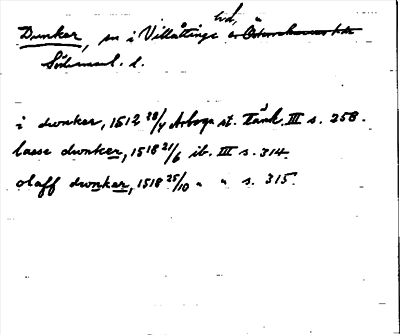 hd,
Dunker, sn i Villåttinge
Södermanl. l.
i dwnker, 1512 28/4 Arboga st. Tänk. III s. 258.
lasse dwnker, 1518 21/6 ib. III s. 314
olaff dwnker, 1518 25/10 " " s. 315.